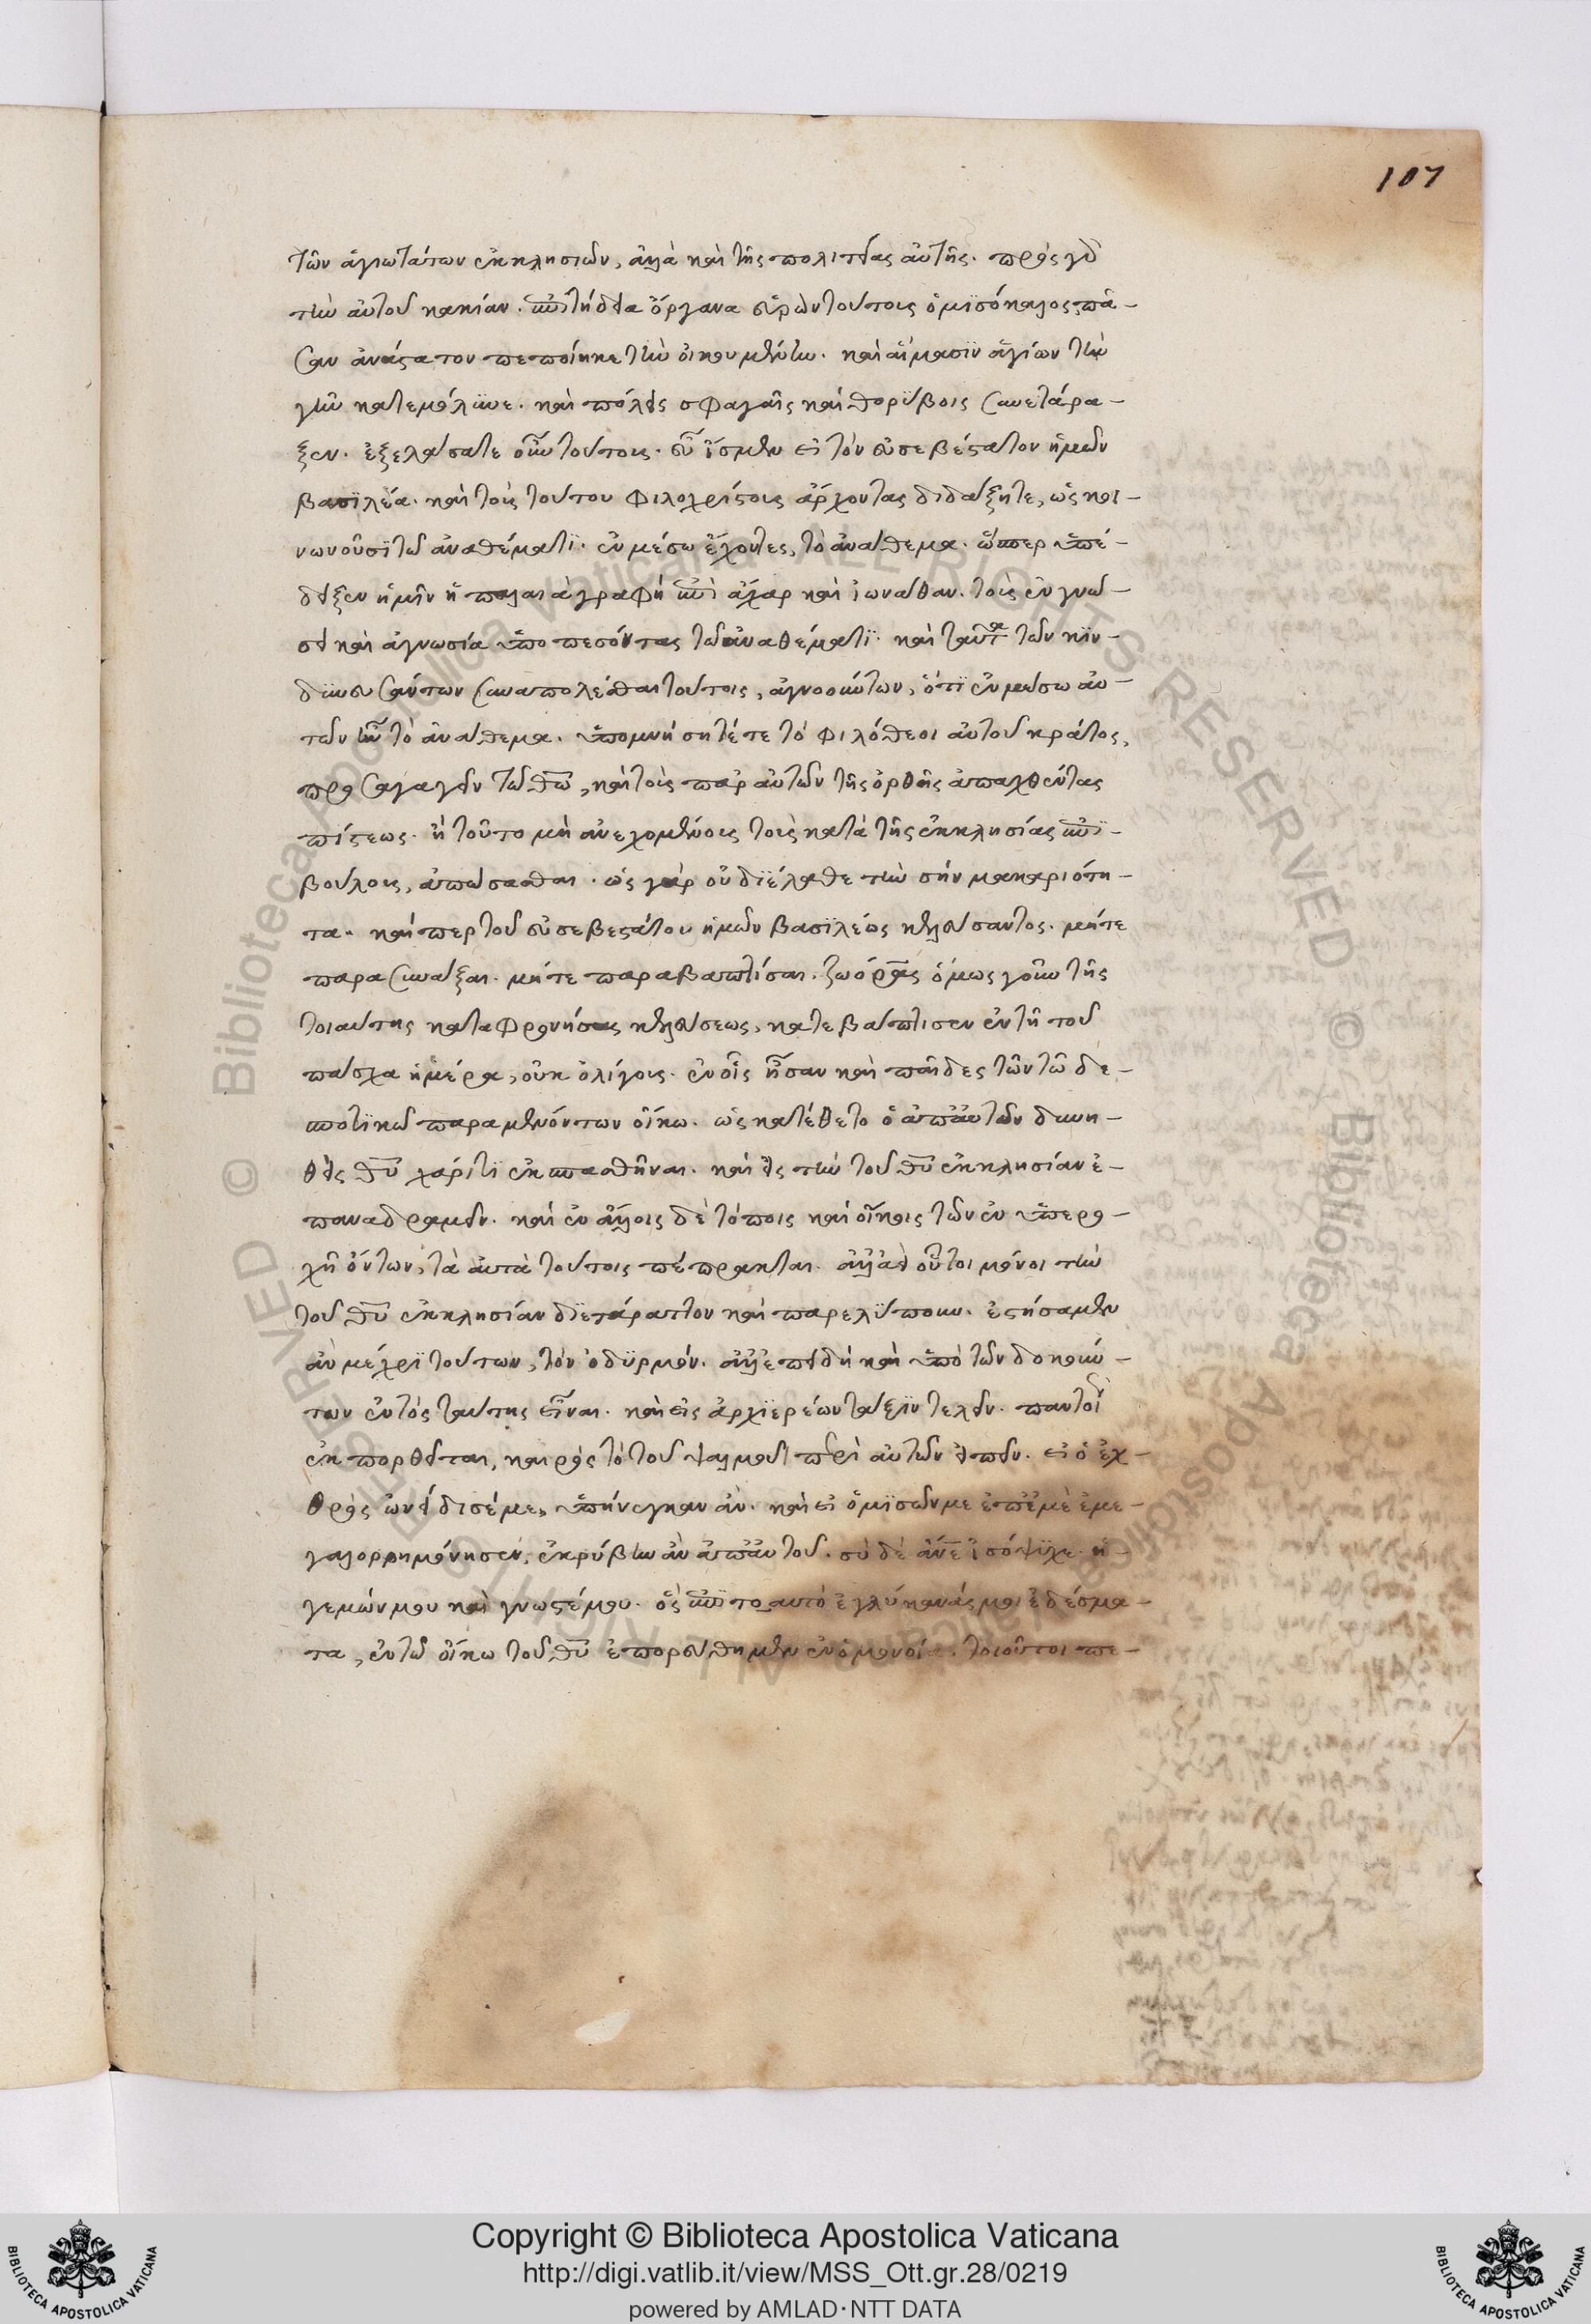 107
τῶν ἁγιωτάτων ἐκκλησιῶν, ἀλλὰ καὶ τῆς πολιτείας αὐτῆς. πρὸς γὰρ
τὴν αὐτοῦ κακίαν. ἐπιτήδεια ὄργανα εὑρὼν τούτους ὁ μισόκαλος πᾶ-
σαν ἀνάστατον πεποίηκε τὴν οἰκουμένην. καὶ αἵμασιν ἁγίων τὴν
γῆν κατεμόλυνε. καὶ πόλεις σφαγαῖς καὶ θορύβοις συνετάρα-
ξεν. ἐξελάσατε οὖν τούτους. εὖ ἴσμεν εἰ τὸν εὐσεβέστατον ἡμῶν
βασιλέα. καὶ τοὺς τούτου φιλοχρίστους ἄρχοντας διδάξητε, ὡς κοι-
νωνοῦσι τῷ ἀναθέματι. ἐν μέσω ἔχοντες, τὸ ἀνάθεμα. ὥσπερ ὑπέ-
δειξεν ἡμῖν ἡ παλαιὰ γραφὴ ἐπὶ ἄχαρ καὶ ἰωνάθαν. τοὺς ἐν γνώ-
σει καὶ ἀγνωσία ὑποπεσόντας τῶ ἀναθέματι. καὶ ταῦτα τῶν κιν-
δυνευσάντων συναπολέσθαι τούτοις, ἀγνοούντων, ὅτι ἐν μέσω αὐ-
τῶν ἦν τὸ ἀνάθεμα. ὑπομνήσητέ τε τὸ φιλόθεοι αὐτοῦ κράτος,
προσαγαγεῖν τῶ θῶ, καὶ τοὺς παρ' αὐτῶν τῆς ὀρθῆς ἀπαχθέντας
πίστεως. ἢ τοῦτο μὴ ἀνεχομένους τοὺς κατὰ τῆς ἐκκλησίας ἐπι-
βούλους, ἀπώσασθαι. ὡς γὰρ οὐ διέλαθε τὴν σὴν μακαριότη-
τα. καίπερ τοῦ εὐσεβεστάτου ἡμῶν βασιλέως κελεύσαντος. μήτε
παρασυνάξαι. μήτε παραβαπτίσαι. ζωόρας ὅμως γοῦν τῆς
τοιαύτης καταφρονήσας κελεύσεως, κατεβάπτισεν ἐν τῆ τοῦ
πάσχα ἡμέρα, οὐκ ὀλίγους. ἐν οἷς ἦσαν καὶ παῖδες τῶν τῶ δε-
σποτικῶ παραμενόντων οἴκω. ὡς κατέθετο ὁ ἀπ' αὐτῶν δυνη-
θεὶς θῦ χάριτι ἐκσπασθῆναι. καὶ εἰς τὴν τοῦ θῦ ἐκκλησίαν ἐ-
παναδραμεῖν. καὶ ἐν ἄλλοις δὲ τόποις καὶ οἴκοις τῶν ἐν ὑπερο-
χῆ ὄντων, τὰ αὐτὰ τούτοις πέπρακται. ἀλλ' εἰ οὗτοι μόνοι τὴν
τοῦ θῦ ἐκκλησίαν διετάραττον καὶ παρελύπουν. ἐστήσαμεν
ἂν μέχρι τούτων, τὸν ὀδυρμόν. ἀλλ' ἐπειδὴ καὶ ὑπὸ τῶν δοκούν-
των ἐντὸς ταύτης εἶναι. καὶ εἰς ἀρχιερέων τάξιν τελεῖν. παντοῖ
ἐκπορθεῖται, καιρὸς τὸ τοῦ ψαλμοῦ περὶ αὐτῶν εἰπεῖν. εἰ ὁ ἐχ-
θρὸς ὠνείδισέ με, ὑπήνεγκαν ἄν. καὶ εἰ ὁ μισῶν με ἐπ' ἐμὲ ἐμε-
γαλορρημόνησεν, ἐκρύβην ἂν ἀπ' αὐτοῦ. σὺ δὲ ἄνε ἰσόψυχε. ἡ-
γεμών μου καὶ γνωστέ μου. ὃς ἐπιτοαυτὸ ἐγλύκανάς μοι ἐδέσμα-
τα, ἐν τῶ οἴκω τοῦ θῦ ἐπορεύθημεν ἐν ὁμονοία. τοιοῦτοι πε-
Copyright © Biblioteca Apostolica Vaticana
http://digi.vatlib.it/view/MSS_Ott.gr.28/0219
powered by AMLAD·NTT DATA